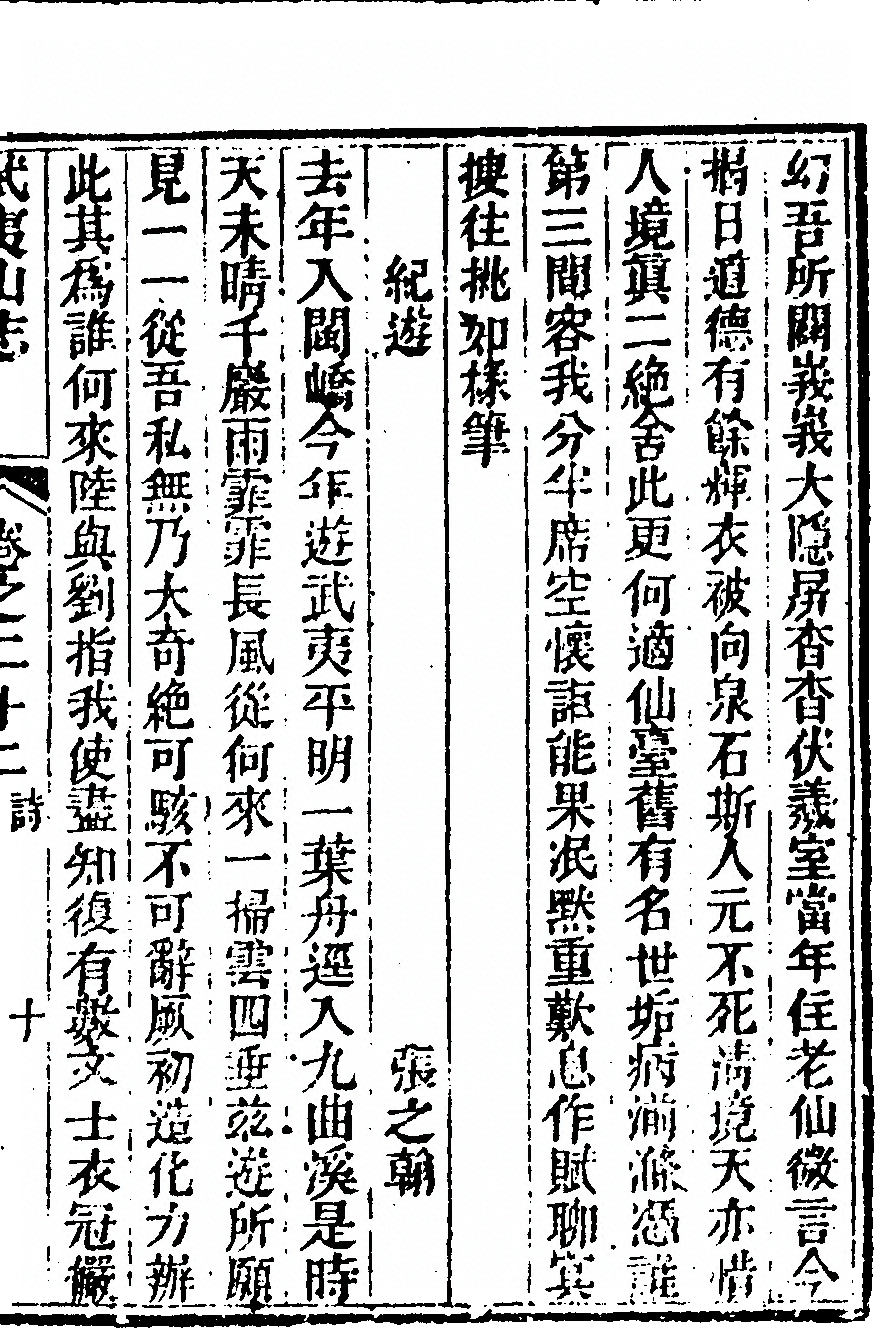 幻吾所闢峩峩大隱屏杳杳伏羲室當年住老仙微言今
揭日道德有餘輝衣被向泉石斯人元不死淸境天亦惜
人境眞二絶舍此更何適仙臺舊有名世垢病湔滌憑誰
第三間容我分半席空懷詎能果泯默重歎息作賦聊寞
摟往挑如椽筆
紀遊 張之翰
去年入閩嶠今年遊武夷平明一葉舟逕入九曲溪是時
天未晴千巖雨霏霏長風從何來一掃雲四垂茲遊所願
見一一從吾私無乃大奇絶可駭不可辭厥初造化力辦
此其爲誰何來陸與劉指我使盡知復有數文士衣冠儼
武夷山志 卷之二十二 詩 十